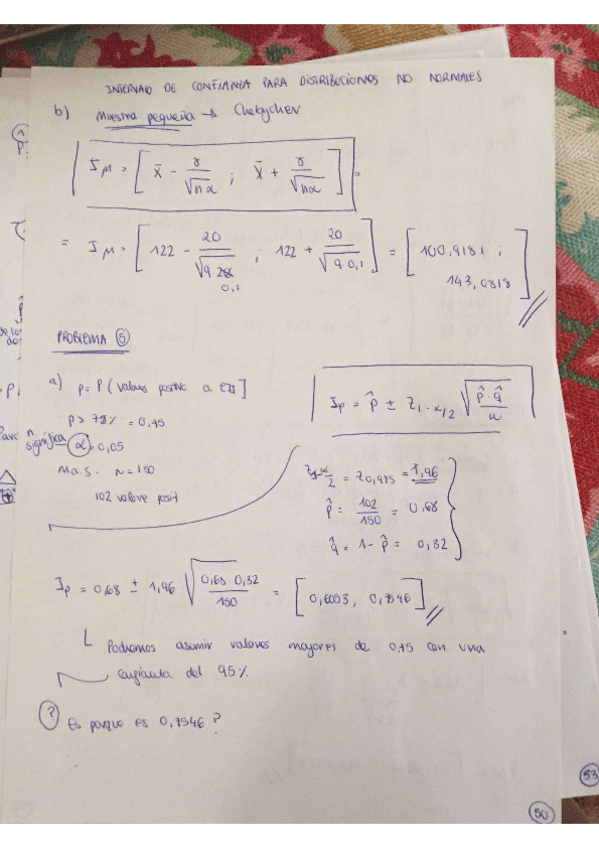 INTERVALO DE CONFIANZA PARA DISTRIBUCIONES NO NORMALES
b) Muestra pequeña → Chebychev
Iμ = [ x̄ - σ/√nα ; x̄ + σ/√nα ] =
= Iμ = [ 122 - 20/√9 0,1 ; 122 + 20/√9 0,1 ] = [ 100,9181 ; 143,0818 ]
PROBLEMA 6
a) p = P ( valores positivo a
p > 75% = 0,75
significa α = 0,05
m.a.s. n = 150
102 valore posit
Ip = p̂ ± Z1-α/2 √p̂·q̂/n
Z1-α/2 = Z0,975 = 1,96
p̂ = 102/150 = 0,68
q̂ = 1 - p̂ = 0,32
Ip = 0,68 ± 1,96 √0,68 0,32/150 = [ 0,6053, 0,7546 ]
Podremos asumir valores mayores de 0,75 con una
confianza del 95%.
? Es porque es 0,7546 ?
53
50